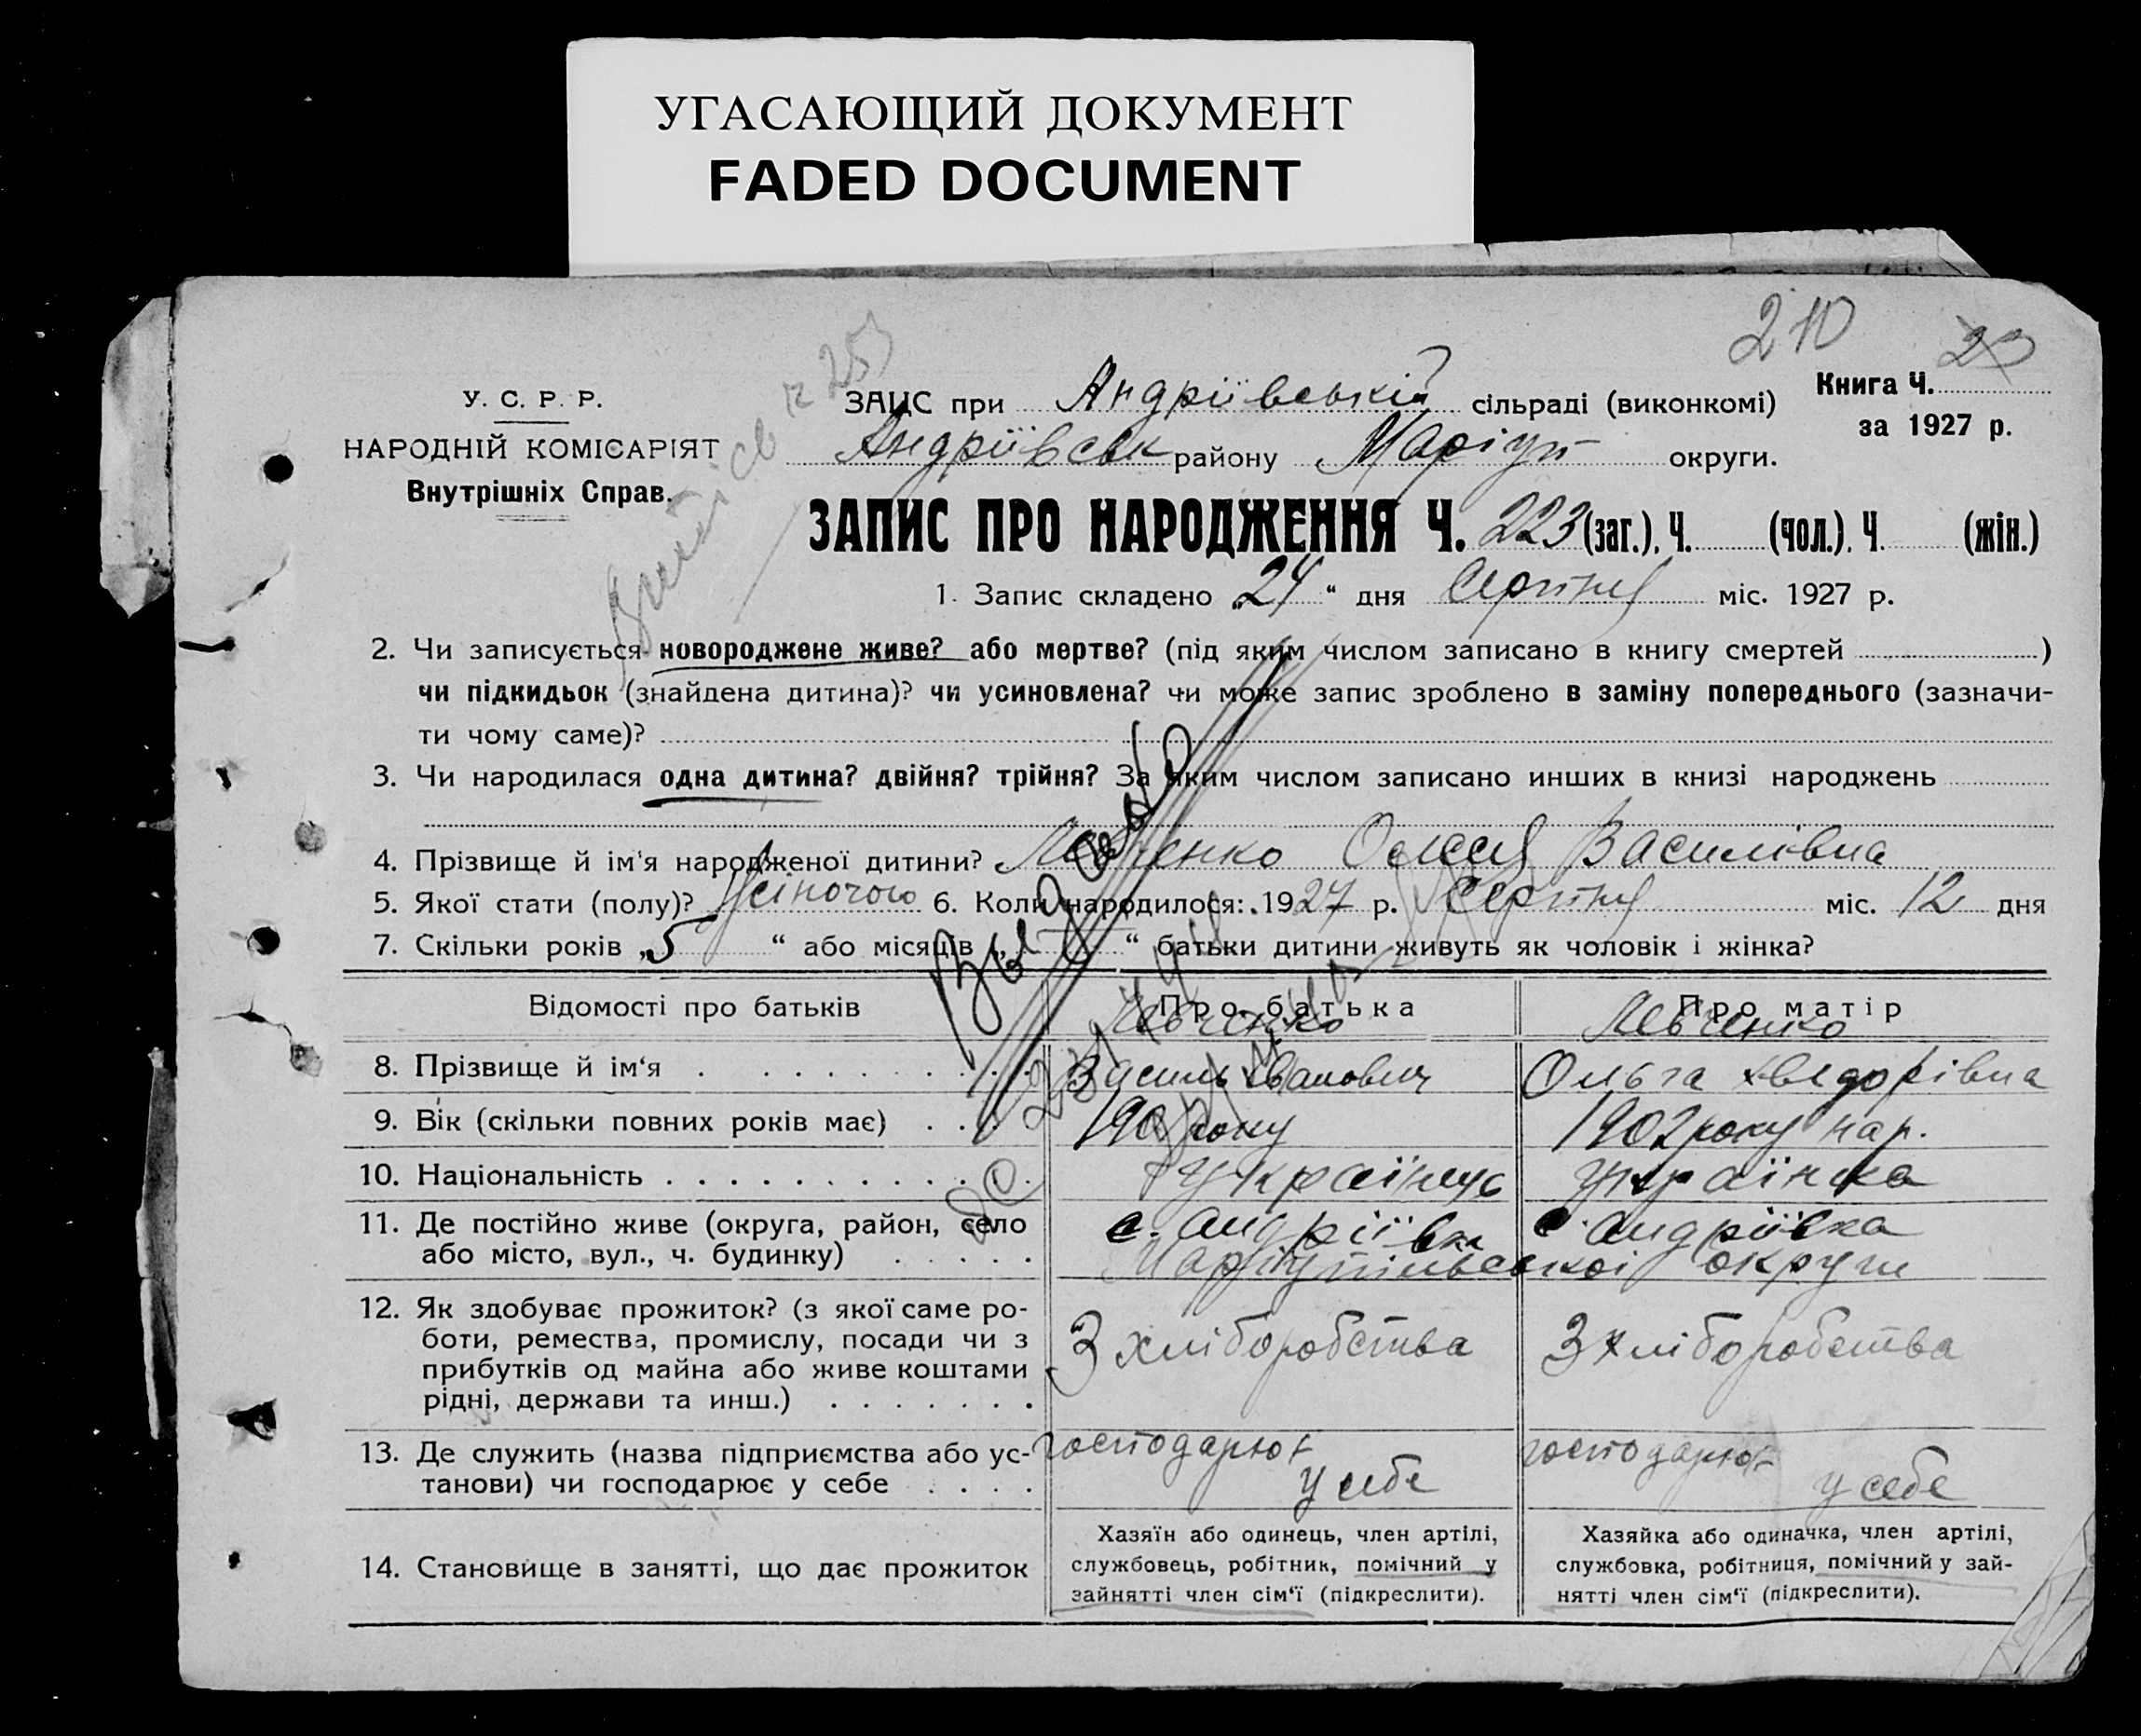 УГАСАЮЩИЙ ДОКУМЕНТ
FADED DOCUMENT
210
23
Книга Ч.
за 1927 р.
У. С. Р. Р.
НАРОДНІЙ КОМІСАРІЯТ
Внутрішніх Справ.
ЗАЦС при Андріївській сільраді (виконкомі)
Андріївськ району Маріуп округи.
ЗАПИС ПРО НАРОДЖЕННЯ Ч. 223 (заг.), Ч. (чол.), Ч. (жін.)
1. Запис складено „24“ дня Серпня міс. 1927 р.
2. Чи записується новороджене живе? або мертве? (під яким числом записано в книгу смертей )
чи підкидьок (знайдена дитина)? чи усиновлена? чи може запис зроблено в заміну попереднього (зазначи-
ти чому саме)?
3. Чи народилася одна дитина? двійня? трійня? За яким числом записано инших в книзі народжень
4. Прізвище й ім'я народженої дитини? Левченко Василівна
5. Якої стати (полу)? Жіночого 6. Коли народилося: 1927 р. Серпня міс. 12 дня
7. Скільки років „5“ або місяців „ “ батьки дитини живуть як чоловік і жінка?
Выдано
Відомості про батьків Про батька Про матір
Левченко Левченко
8. Прізвище й ім‘я Василь Іванович Ольга Хведорівна
9. Вік (скільки повних років має) року 1902 року нар.
10. Національність українець українка
11. Де постійно живе (округа, район, село с. Андріївка с. Андріївка
або місто, вул., ч. будинку) Маріупільської округи
12. Як здобуває прожиток? (з якої саме ро-
боти, ремества, промислу, посади чи з З хліборобства З хліборобства
прибутків од майна або живе коштами
рідні, держави та инш.)
13. Де служить (назва підприємства або ус- господарює господарює
танови) чи господарює у себе у себе у себе
14. Становище в занятті, що дає прожиток
Хазяїн або одинець, член артілі,
службовець, робітник, помічний у
зайнятті член сім‘ї (підкреслити).
Хазяйка або одиначка, член артілі,
службовка, робітниця, помічний у зай-
нятті член сім‘ї (підкреслити).